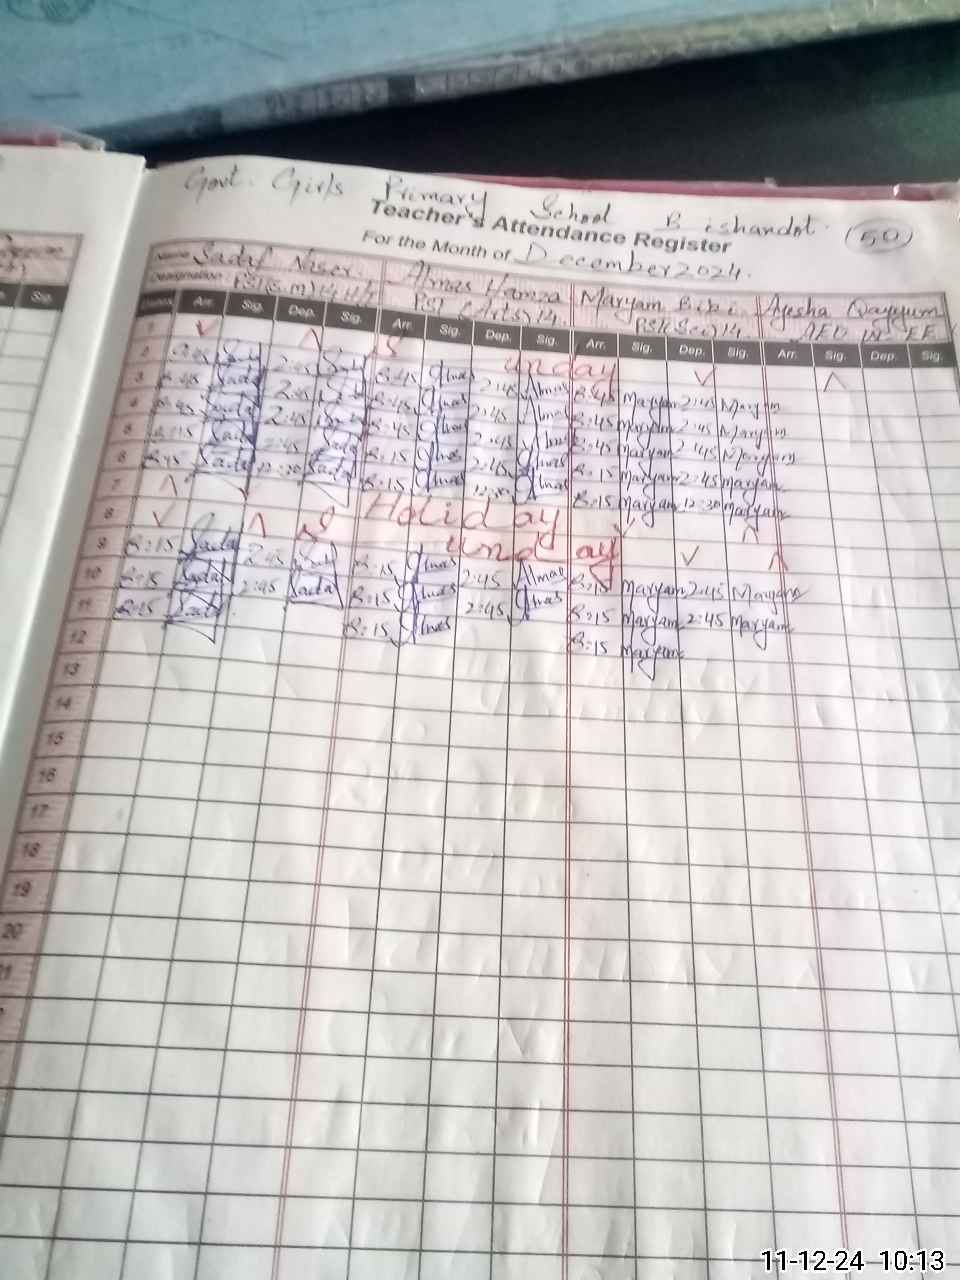 Govt. Girls Primary School Bishandot. 50
Teacher's Attendance Register
For the Month of December 2024.
Name Sadaf Naser. Almas Hamza Maryam Bibi Ayesha Qayyum
Designation PST (S.M) 14 PST (Arts) 14 PST (Sci) 14
Dates Arr. Sig. Dep. Sig. Arr. Sig. Dep. Sig. Arr. Sig. Dep. Sig. Arr. Sig. Dep. Sig.
1 S unday
2 8:45 2:45 8:45 Almas 2:45 Almas 8:45 Maryam 2:45 Maryam
3 8:45 Sada 2:45 8:45 Almas 2:45 Almas 8:45 Maryam 2:45 Maryam
4 8:45 Sada 2:45 Sada 8:45 Almas 2:45 Almas 8:45 Maryam 2:45 Maryam
5 8:15 Sada 2:45 Sada 8:15 Almas 2:45 Almas 8:15 Maryam 2:45 Maryam
6 8:15 Sada 12:30 Sada 8:15 Almas 12:30 Almas 8:15 Maryam 12:30 Maryam
7 Holiday
8 S unday
9 8:15 Sada 2:45 8:15 Almas 2:45 Almas 8:15 Maryam 2:45 Maryam
10 8:15 Sada 2:45 Sada 8:15 Almas 2:45 Almas 8:15 Maryam 2:45 Maryam
11 8:15 Sada 8:15 Almas 8:15 Maryam
12
13
14
15
16
17
18
19
20
21
Sig.
11-12-24 10:13